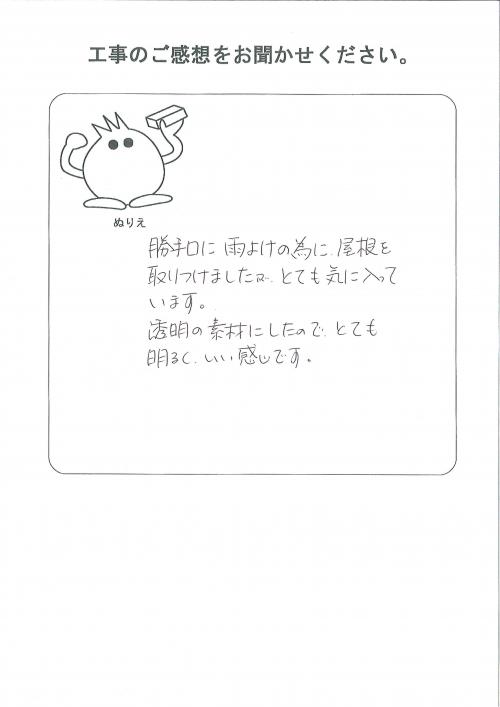 工事のご感想をお聞かせください。
ぬりえ
勝手口に 雨よけの為に、屋根を
取りつけましたが、とても気に入って
います。
透明の素材にしたので、とても
明るく、いい感じです。